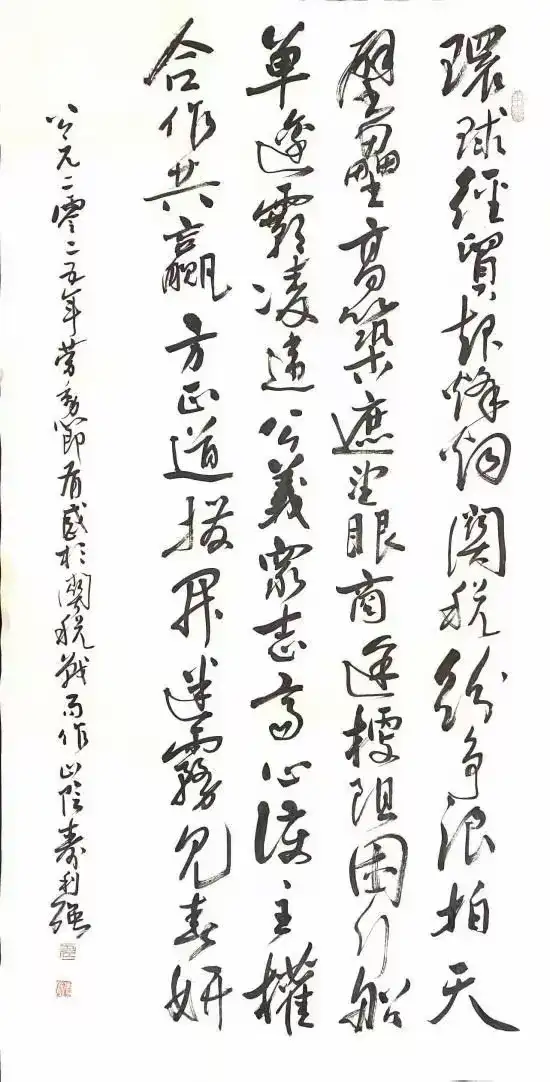 環球經貿起烽烟關税紛争浪拍天
壁壘高築遮望眼商途梗阻困行船
單邊霸凌違公義眾志齊心護主權
合作共贏方正道撥開迷霧見春妍
公元二零二五年勞動節有感於關税戰而作山陰壽利強